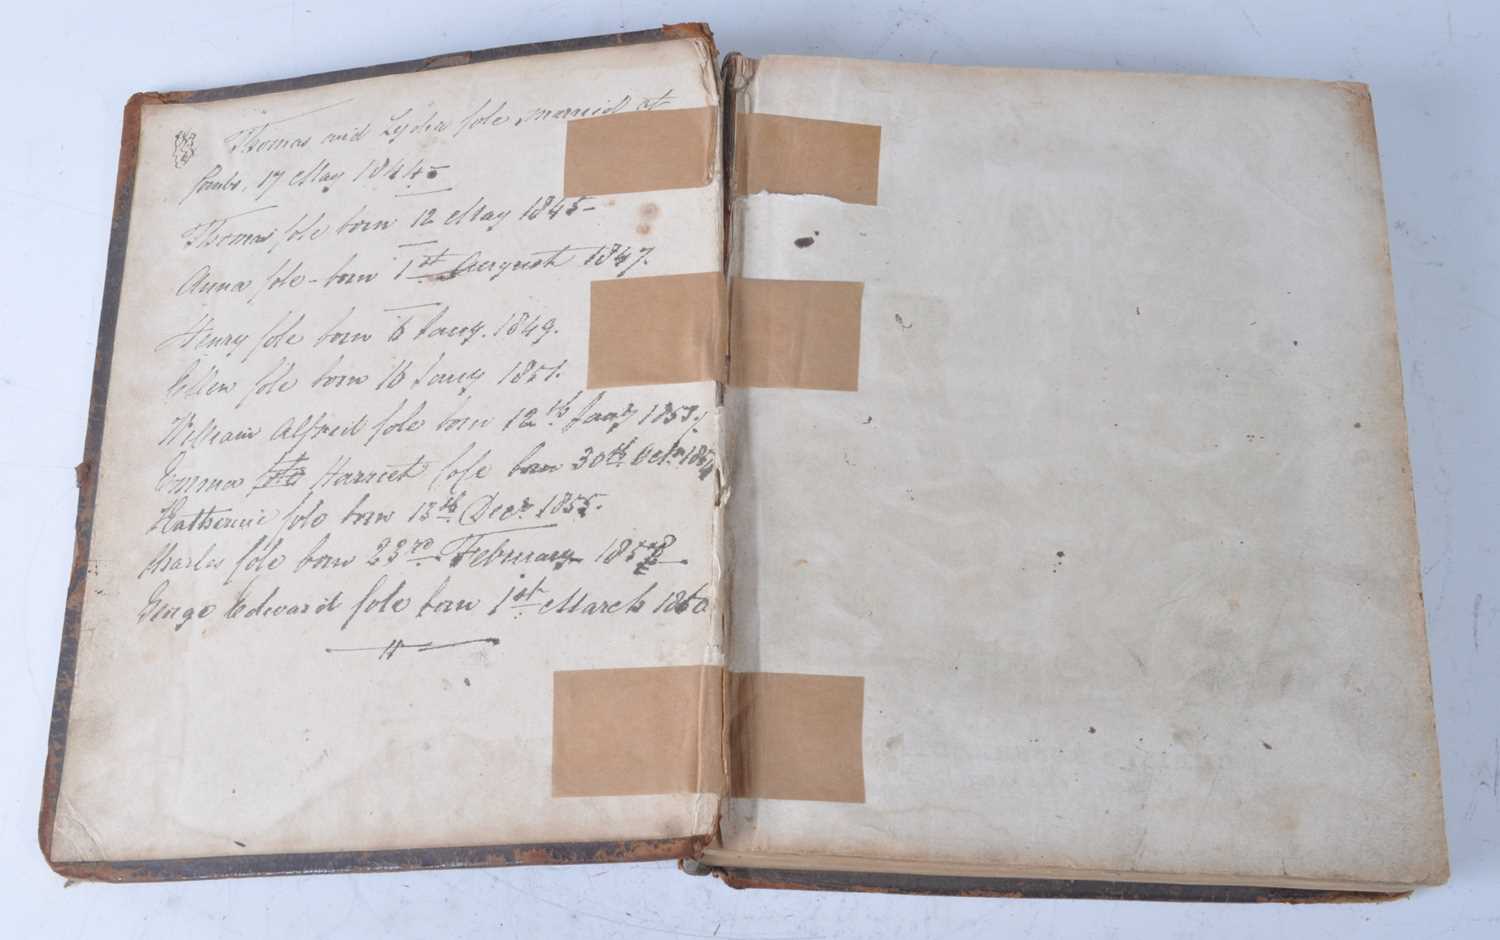 Thomas and Lydia Sole married at
17 May 1844
Thomas Sole born 12 May 1845-
Anna Sole - born 1st August 1847.
Henry Sole born 6 Jany. 1849.
Ellen Sole born 16 Jany 1851.
William Alfred Sole born 12th Jany 1853
Emma Harriet Sole born 30th Octr 1854
Katherine Sole born 13th Decr 1855.
Charles Sole born 23rd February
George Edward Sole born 1st March 1860